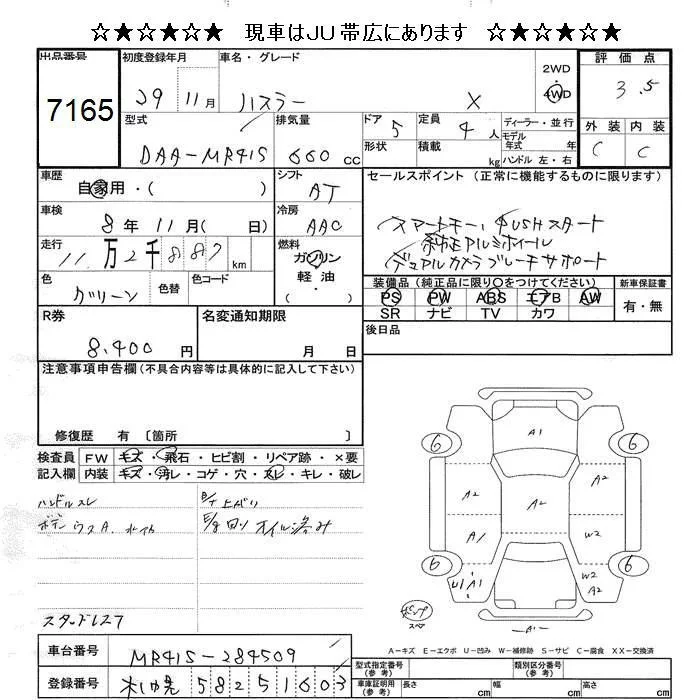 ☆★☆★☆★ 現車はJU帯広にあります ☆★☆★☆★
出品番号 初度登録年月 車名・グレード 評価点
7165 29 11月 ハスラー X 2WD 4WD 3.5
型式 排気量 ドア 定員 ディーラー・並行 外装 内装
DAA-MR41S 660cc 5 4人 モデル年式 年 C C
形状 積載 kg ハンドル 左・右
車歴 自家用・( ) シフト AT セールスポイント(正常に機能するものに限ります)
車検 8年11月( 日) 冷房 AAC スマートキー、PUSHスタート
走行 11万2千887km 燃料 ガソリン 軽油 ( ) 純正アルミホイール
デュアルカメラブレーキサポート
色 グリーン 色替 色コード 装備品(純正品に限り〇をつけてください) 新車保証書
PS PW ABS エアB AW 有・無
SR ナビ TV カワ
R券 8,400円 名変通知期限 月 日 後日品
注意事項申告欄(不具合内容等は具体的に記入して下さい)
修復歴 有 〔箇所 〕
検査員 FW キズ・飛石・ヒビ割・リペア跡・×要
記入欄 内装 キズ・汚レ・コゲ・穴・スレ・キレ・破レ
ハンドルスレ
ボデーウスA.
オイル滲み
スタッドレス
A1
6 6
A2 A2 A2
A1 W2
6 6
U1 A1 W2 A2
A1
A-キズ E-エクボ U-凹み W-補修跡 S-サビ C-腐食 XX-交換済
車台番号 MR41S-284509 型式指定番号(参考) 類別区分番号(参考)
登録番号 札幌 582 5 1603 車庫証明用(参考) 長さ cm 幅 cm 高さ cm